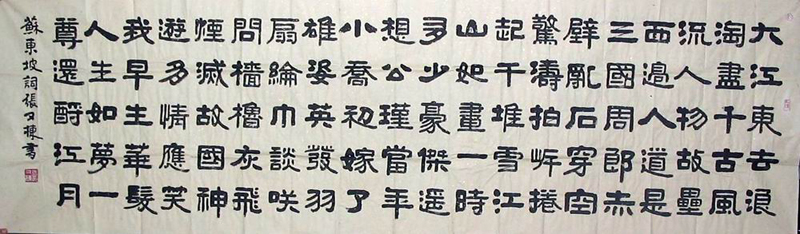 大江東去浪
淘盡千古風
流人物故壘
西邊人道是
三國周郎赤
壁亂石穿空
驚濤拍岸捲
起千堆雪江
山如畫一時
多少豪傑遥
想公瑾當年
小喬初嫁了
雄姿英發羽
扇綸巾談咲
間檣櫓灰飛
煙滅故國神
遊多情應笑
我早生華髮
人生如夢一
尊還酹江月
蘇東坡詞張又棟書